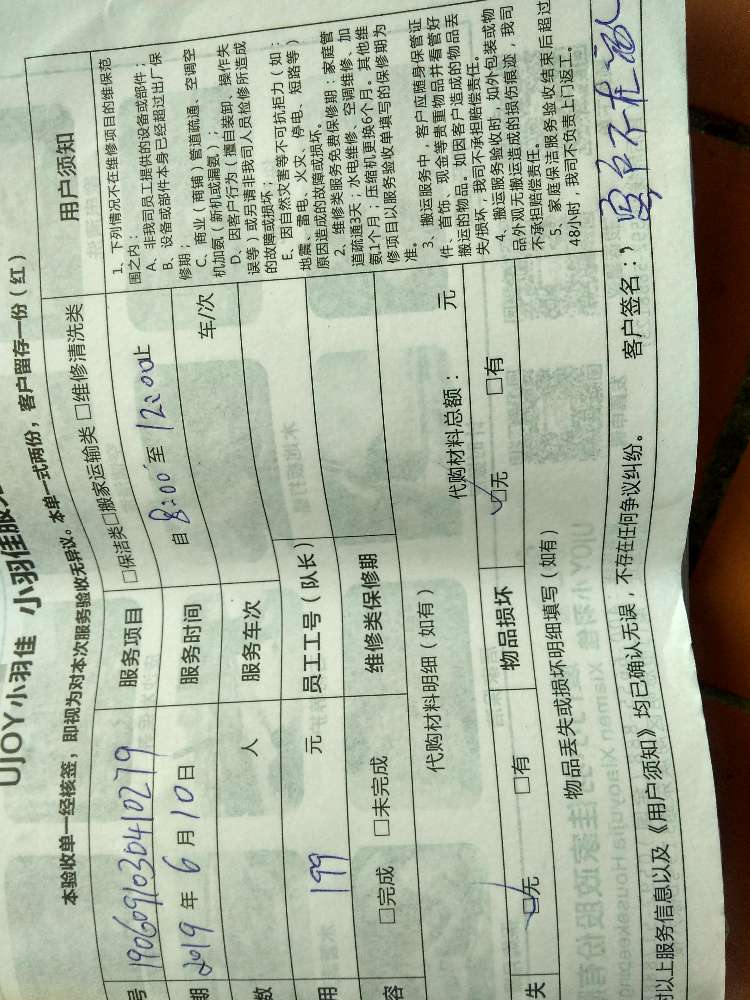 UJOY小羽佳 小羽佳服
本验收单一经核签，即视为对本次服务验收无异议。本单一式两份，客户留存一份（红）
号 190609103041 0279 服务项目 □保洁类□搬家运输类 □维修清洗类
期 2019 年 6 月 10 日 服务时间 自 8:00 至 12:00止
数 人 服务车次 车/次
用 199 元 员工工号（队长）
容 □完成 □未完成 维修类保修期
代购材料明细（如有） 代购材料总额： 元
失 □无 □有 物品损坏 □无 □有
物品丢失或损坏明细填写（如有）
对以上服务信息以及《用户须知》均已确认无误，不存在任何争议纠纷。 客户签名：
用户须知
1、下列情况不在维修项目的维保范
围之内：
A、非我司员工提供的设备或部件；
B、设备或部件本身已经超过出厂保
修期；
C、商业（商铺）管道疏通、空调空
机加氨（新机或漏氨）；
D、因客户行为（擅自装卸、操作失
误等）或另请非我司人员检修所造成
的故障或损坏；
E、因自然灾害等不可抗拒力（如：
地震、雷电、火灾、停电、短路等）
原因造成的故障或损坏。
2、维修类服务免费保修期：家庭管
道疏通3天；水电维修、空调维修、加
氨1个月；压缩机更换6个月。其他维
修项目以服务验收单填写的保修期为
准。
3、搬运服务中，客户应随身保管证
件、首饰、现金等贵重物品并看管好
搬运的物品。如因客户造成的物品丢
失/损坏，我司不承担赔偿责任。
4、搬运服务验收时，如外包装或物
品外观无搬运造成的损伤痕迹，我司
不承担赔偿责任。
5、家庭保洁服务验收结束后超过
48小时，我司不负责上门返工。